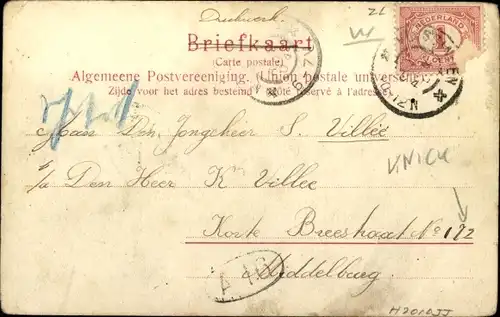 Drukwerk.
21
Briefkaart
(Carte postale)
Algemeene Postvereeniging. (Union postale universelle.)
Zijde voor het adres bestemd. Côté réservé à l'adresse.
NEDERLAND
1
Aan Den Jongeheer S. Villée
p/a Den Heer K Villée
VNICK
Korte Breestraat No 192
Middelburg
A
H2010JJ